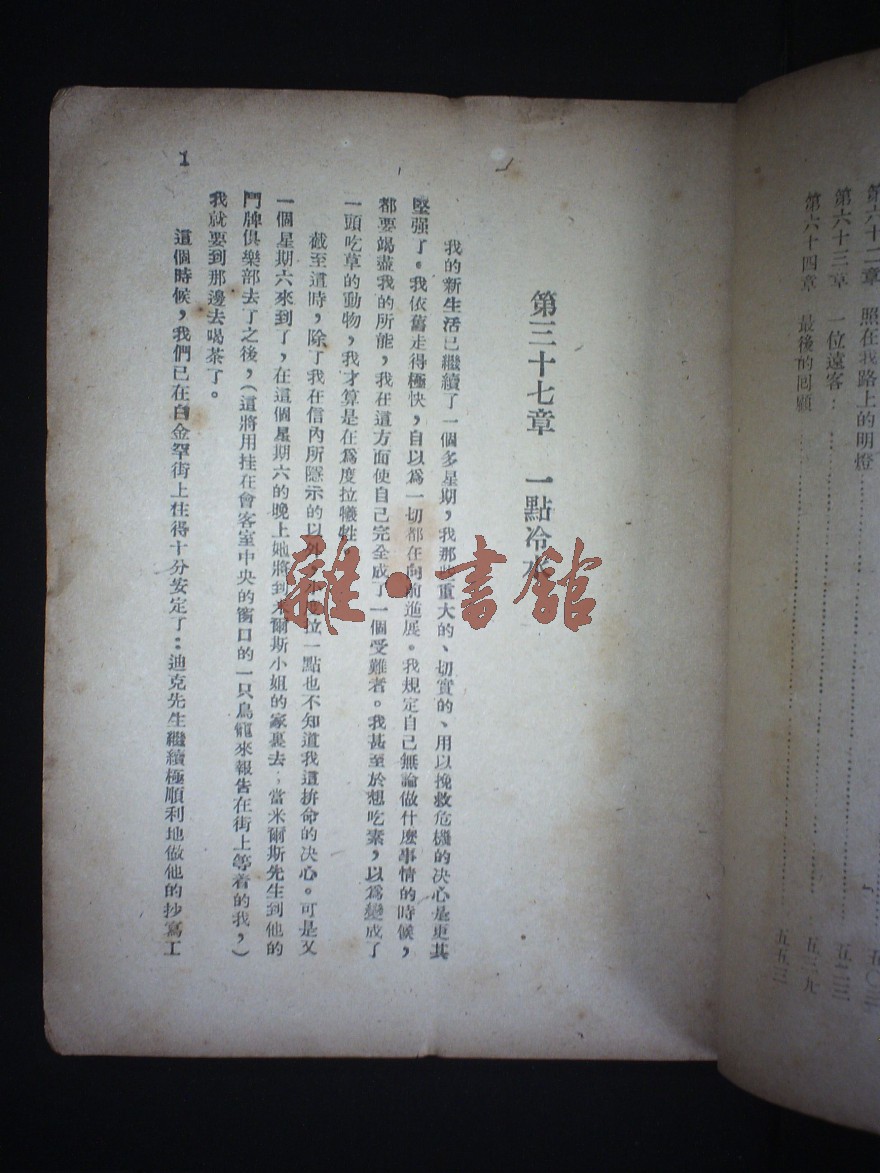 第六十二章　照在我路上的明燈……五〇三
第六十三章　一位遠客……五二三
第六十四章　最後的回顧……五五三
第三十七章　一點冷水
我的新生活已繼續了一個多星期，我那些重大的、切實的、用以挽救危機的决心是更其
堅强了。我依舊走得極快，自以爲一切都在向前進展。我規定自己無論做什麼事情的時候，
都要竭盡我的所能，我在這方面使自己完全成了一個受難者。我甚至於想吃素，以爲變成了
一頭吃草的動物，我才算是在爲度拉犧牲
截至這時，除了我在信內所隱示的以外，拉一點也不知道我這拚命的决心。可是又
一個星期六來到了，在這個星期六的晚上她將到米爾斯小姐的家裏去；當米爾斯先生到他的
鬥牌俱樂部去了之後，（這將用挂在會客室中央的窗口的一只鳥籠來報告在街上等着的我，）
我就要到那邊去喝茶了。
這個時候，我們已在白金罕街上住得十分安定了：迪克先生繼續極順利地做他的抄寫工
1
雜·書館